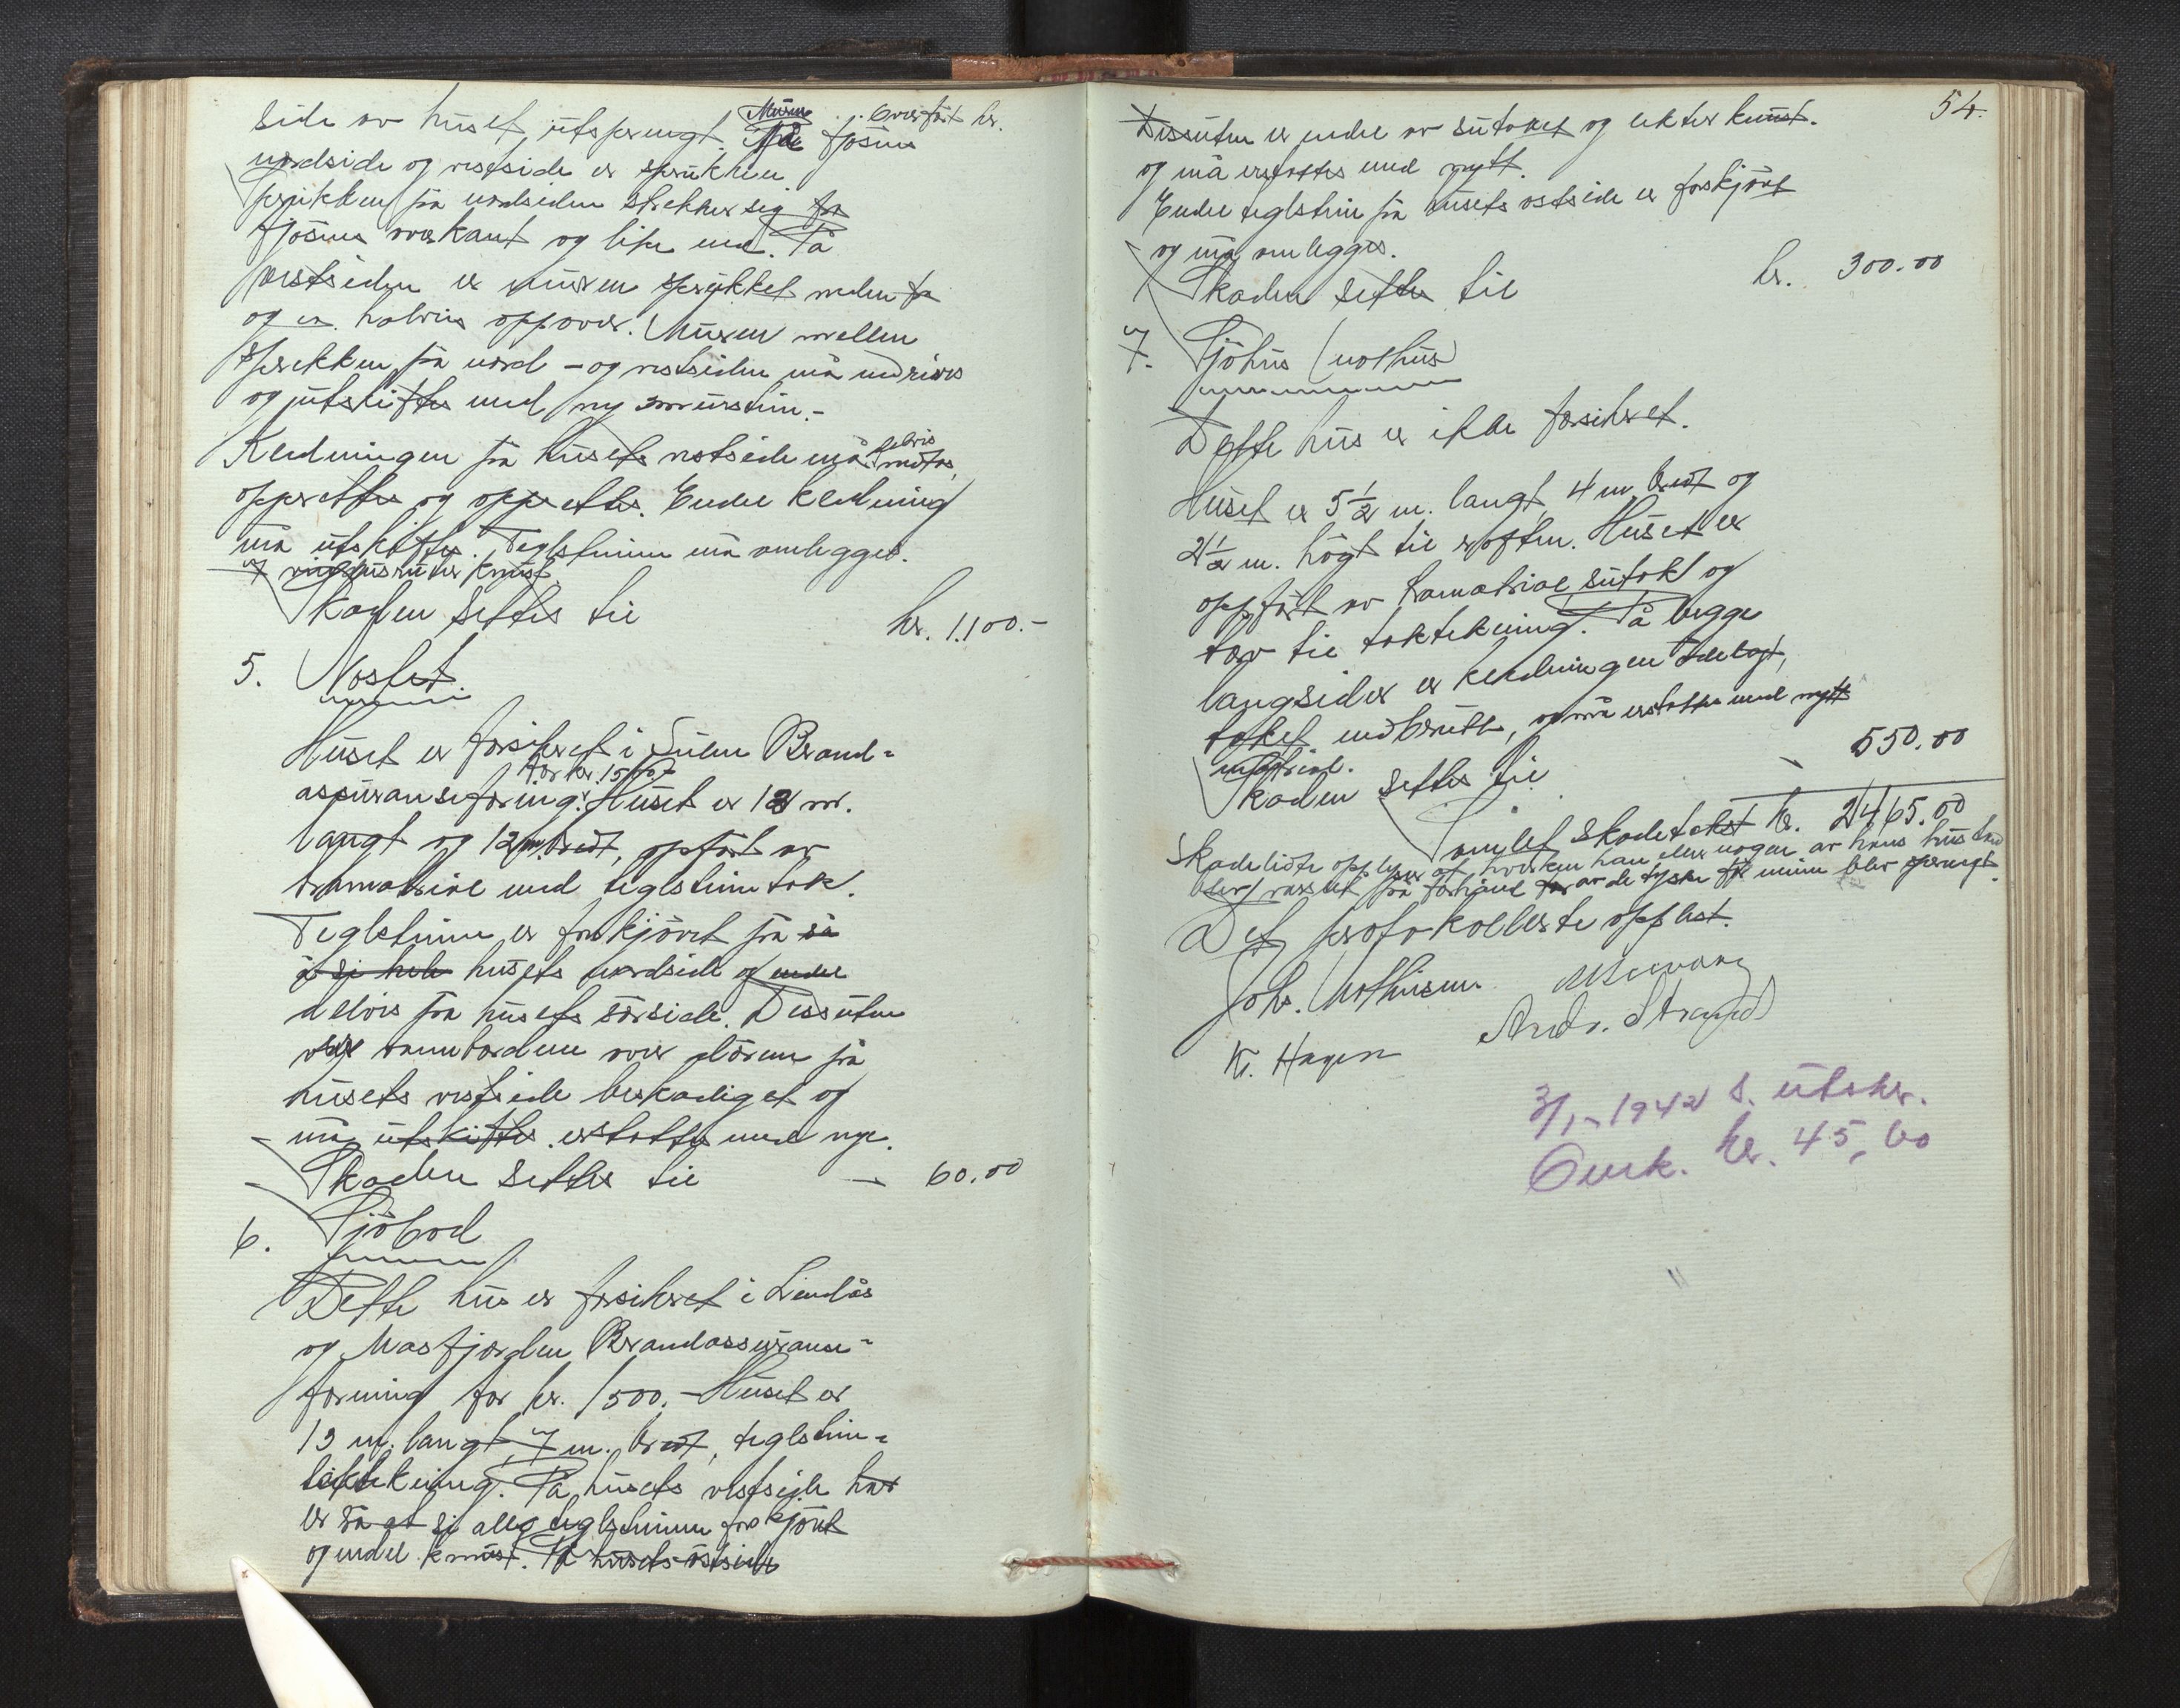 Overført kr.
side av huset utsprengt. Muren På fjösens
nordside og vestside er sprukken
Sprekken på nordsiden strekker sig fra
fjösens overkant og like ned. På
vestsiden er muren sprukket neden fra
og ca. halvveis oppover. Muren mellem
sprekken på nord - og vestsiden må nedrives
og utskiftes med ny murstein.-
Kledningen på husets vestside må delvis nedtas,
opprettes og oppsettes. Endel kledning
må utskiftes. Teglsteinene må omlegges.
7 vindusruter knust.
Skaden settes til kr. 1.100.-
5. Nostet.
Huset er forsikret i Sulen Brand-
assuranseforing for kr. 1500.- Huset er 18 m.
langt og 12 m. bredt, opført av
trematriale med teglsteintak.
Teglsteinene er forskjövet på så
å si hele husets nordside og endel
delvis på husets sörside. Dessuten
er tannbordene over dören på
husets vestside beskadiget og
må utskiftes erstattes med nye.
Skaden settes til - 60.00
6. Sjöbod
Dette hus er forsikret i Lindås
og Masfjorden Brandassuranse-
forening for kr. 1500.- Huset er
13 m. langt, 7 m. bredt, teglstein-
taktekning. På husets vestside har
er så at si alle teglsteinene forskjövet
og endel knust. På husets östside
54.
Dessuten er endel av sutaket og lekter knust.
og må erstattes med nytt.
Endel teglstein på husets ostside er forskjövet
og må omlegges.
Skaden settes til kr. 300.00
7. Sjöhus (nothus)
Dette hus er ikke forsikret.
Huset er 5 1/2 m. langt, 4 m bredt og
2 1/2 m. högt til roften. Huset er
oppfört av trematriale sutak og
torv til taktekning. På begge
langsider er kledningen ödelagt,
taket nedbrutt, og må erstattes med nytt
matriale.
Skaden settes til - 550.00
Samlet skadetakst kr. 2465.00
Skadelidte opplyser at hverken han eller nogen av hans husstand
blev varslet på forhånd av de tyske för minen blev sprengt.
Det protokollerte opplest.
Johs. Mathisen
K. Hagen Andr. Strand
3/1-1942 s. utskr.
Omk. kr. 45,60